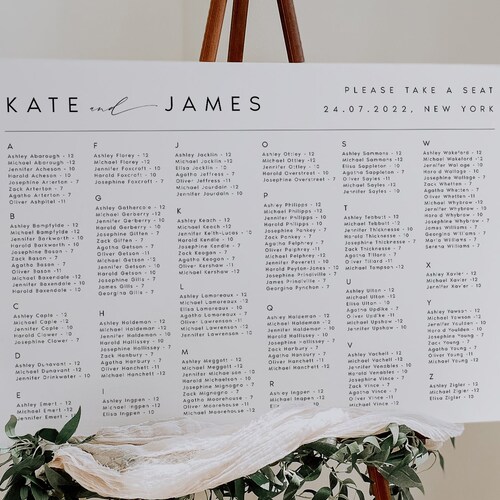 KATE and JAMES
PLEASE TAKE A SEAT
24.07.2022, NEW YORK
A
Ashley Abarough - 12
Michael Abarough - 12
Jennifer Acheson - 10
Harold Acheson - 10
Josephine Arterton - 7
Zack Arterton - 7
Oliver Ashpitel - 11
B
Ashley Bampfylde - 12
Michael Bampfylde - 12
Jennifer Barkworth - 10
Harold Barkworth - 10
Josephine Bason - 7
Zack Bason - 7
Agatha Bason - 7
Oliver Bason - 11
Michael Baxendale - 12
Jennifer Baxendale - 10
Harold Baxendale - 10
C
Ashley Caple - 12
Michael Caple - 12
Jennifer Caple - 10
Harold Clower - 10
Josephine Clower - 7
D
Ashley Dunavant - 12
Michael Dunavant - 12
Jennifer Drinkwater - 10
E
Ashley Emart - 12
Michael Emart - 12
F
Ashley Florey - 12
Michael Florey - 12
Jennifer Foxcroft - 10
Harold Foxcroft - 10
Josephine Foxcroft - 7
G
Michael Garberry - 12
Jennifer Garberry - 10
Josephine Gitten - 7
Zack Gitten - 7
Agatha Getson - 7
Oliver Getson - 11
Michael Getson - 12
Jennifer Getson - 10
Harold Getson - 10
Josephine Gills - 7
James Gills - 7
Georgina Gills - 7
H
Ashley Haldeman - 12
Michael Haldeman - 12
Jennifer Haldeman - 10
Harold Hollisey - 10
Josephine Hollisey - 7
Zack Hanbury - 7
Agatha Hanbury - 7
Oliver Hanchett - 11
Michael Hanchett - 12
I
Ashley Ingpen - 12
Michael Ingpen - 12
J
Ashley Jocklin - 12
Michael Jocklin - 12
Elisa Jocklin - 10
Agatha Jeffress - 7
Oliver Jeffress - 11
Michael Jourdain - 12
Jennifer Jourdain - 10
K
Ashley Keach - 12
Michael Keach - 12
Harold Kendle - 10
Josephine Kendle - 7
Zack Keegan - 7
Agatha Keegan - 7
Oliver Kershaw - 11
Michael Kershaw - 12
L
Ashley Lamoreaux - 12
Michael Lamoreaux - 12
Elisa Lamoreaux - 10
Agatha Lamoreaux - 7
Oliver Lawrenson - 11
Michael Lawrenson - 12
Jennifer Lawrenson - 10
M
Ashley Meggott - 12
Michael Meggott - 12
Jennifer Michaelson - 10
Harold Michaelson - 10
Josephine Mignogno - 7
Zack Mignogno - 7
Agatha Moorehouse - 7
Oliver Moorehouse - 11
O
Ashley Ottley - 12
Michael Ottley - 12
Jennifer Ottley - 10
Harold Overstreet - 10
Josephine Overstreet - 7
P
Ashley Philipps - 12
Michael Philipps - 12
Jennifer Philipps - 10
Harold Philipps - 10
Josephine Pansey - 7
Zack Pansey - 7
Agatha Palphrey - 7
Oliver Palphrey - 11
Michael Palphrey - 12
Jennifer Peverell - 10
Harold Payton-Jones - 10
Josephine Prinsiville - 7
James Prinsiville - 7
Georgina Pynchon - 7
Q
Ashley Haldeman - 12
Michael Haldeman - 12
Jennifer Haldeman - 10
Harold Hollisey - 10
Josephine Hollisey - 7
Zack Hanbury - 7
Agatha Hanbury - 7
Oliver Hanchett - 11
Michael Hanchett - 12
R
Ashley Ingpen - 12
Michael Ingpen
S
Ashley Sammons - 12
Michael Sammons - 12
Elisa Sapoleton - 10
Agatha Sapoleton - 7
Oliver Sayles - 11
Michael Sayles - 12
Jennifer Sayles - 10
T
Ashley Tebbott - 12
Michael Tebbott - 12
Jennifer Thickness - 10
Harold Thickness - 10
Josephine Thickness - 7
Zack Tillary - 7
Agatha Tillary - 7
Oliver Tillard - 11
Michael Tompson - 12
U
Ashley Ulton - 12
Michael Ulton - 12
Elisa Ulton - 10
Agatha Updike - 7
Oliver Updike - 11
Michael Upshow - 12
Jennifer Upshow - 10
V
Ashley Vachell - 12
Michael Vachell - 12
Jennifer Venables - 10
Harold Venables - 10
Josephine Vance - 7
Zack Vance - 7
Agatha Vance - 7
Oliver Vince - 11
Michael Vince - 12
W
Ashley Wakeford - 12
Michael Wakeford - 12
Jennifer Wallage - 10
Harold Wallage - 10
Josephine Wallage - 7
Zack Whatton - 7
Agatha Whatton - 7
Oliver Whatton - 11
Michael Whybrow - 12
Jennifer Whybrow - 10
Harold Whybrow - 10
Josephine Whybrow - 7
Georgina Williams - 7
James Williams - 7
Maria Williams - 11
Serena Williams - 11
X
Ashley Xavier - 12
Michael Xavier - 12
Jennifer Xavier - 10
Y
Ashley Yanwor - 12
Michael Yanwor - 12
Jennifer Youlden - 10
Harold Youlden - 10
Josephine Young - 7
Zack Young - 7
Agatha Young - 7
Oliver Young - 11
Michael Young - 12
Z
Ashley Zigler - 12
Michael Zigler - 12
Elisa Zigler - 10